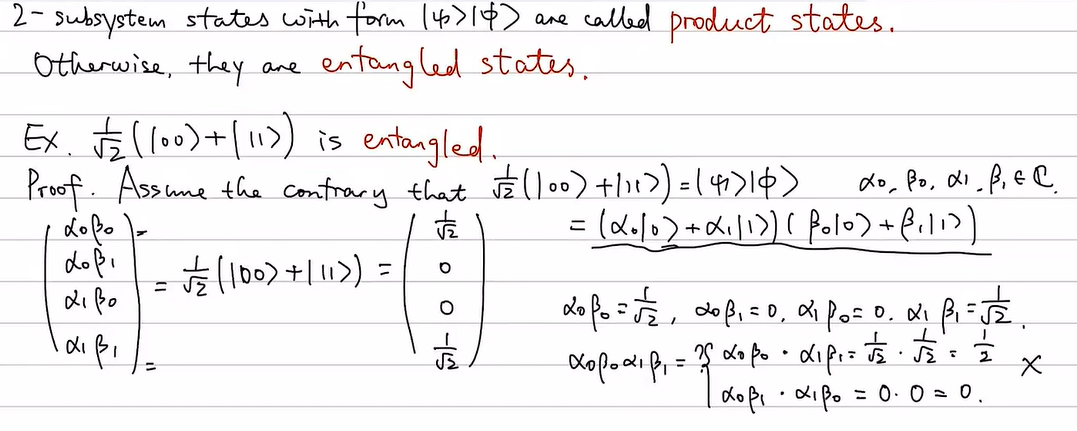 2-subsystem states with form |ψ>|ϕ> are called product states.
Otherwise, they are entangled states.
Ex. 1/√2 (|00>+|11>) is entangled.
Proof. Assume the contrary that 1/√2 (|00>+|11>) = |ψ>|ϕ> α₀, β₀, α₁, β₁ ∈ ℂ.
= (α₀|0>+α₁|1>)(β₀|0>+β₁|1>)
(α₀β₀ α₀β₁ α₁β₀ α₁β₁) = 1/√2 (|00>+|11>) = (1/√2 0 0 1/√2)
α₀β₀ = 1/√2, α₀β₁ = 0, α₁β₀ = 0. α₁β₁ = 1/√2.
α₀β₀α₁β₁ = { α₀β₀ · α₁β₁ = 1/√2 · 1/√2 = 1/2 ×
α₀β₁ · α₁β₀ = 0 · 0 = 0.